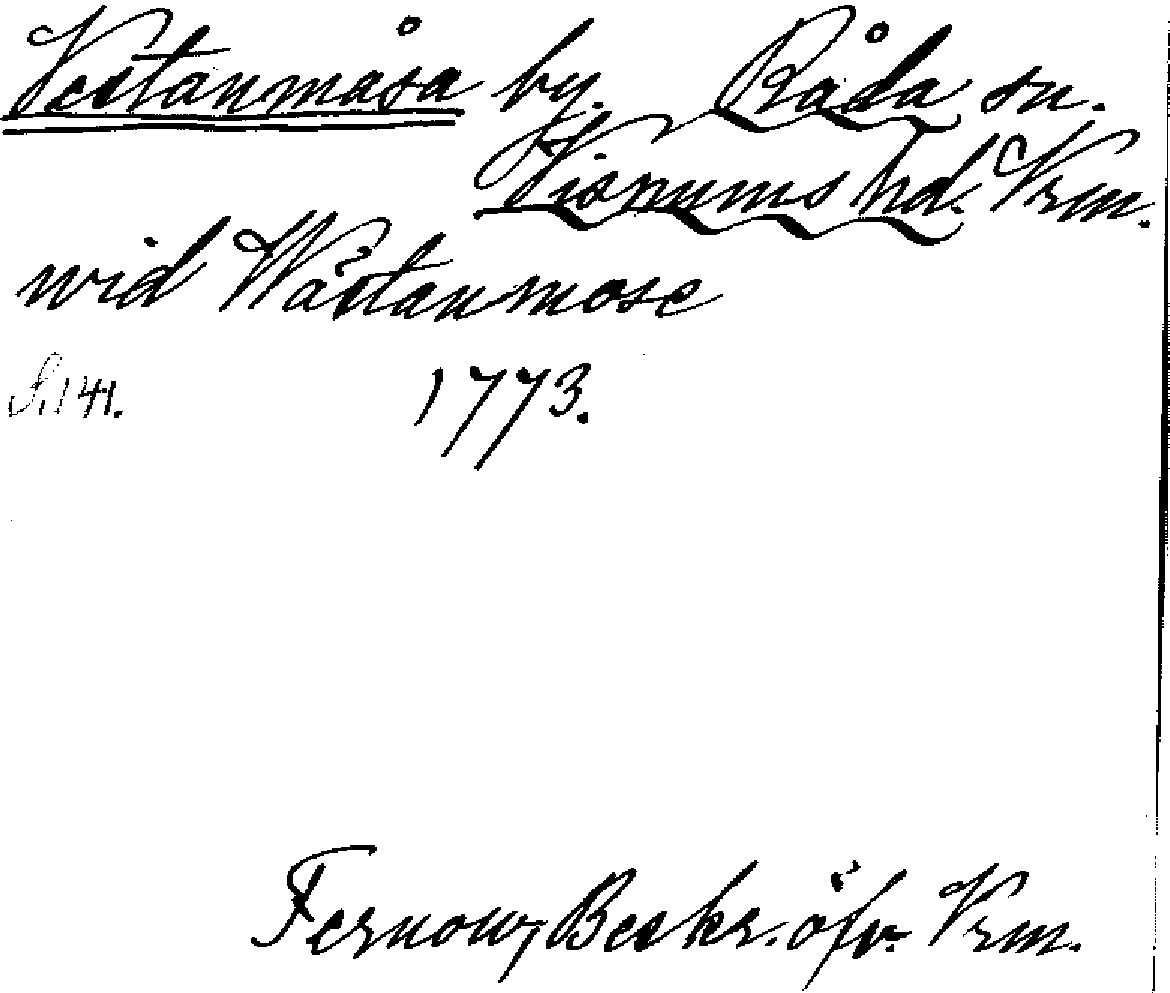 Vestanmåsa by. Råda sn.
Visnums hd. Vrm.
wid Wästanmose
S. 141. 1773.
Fernow, Beskr. öfv. Vrm.